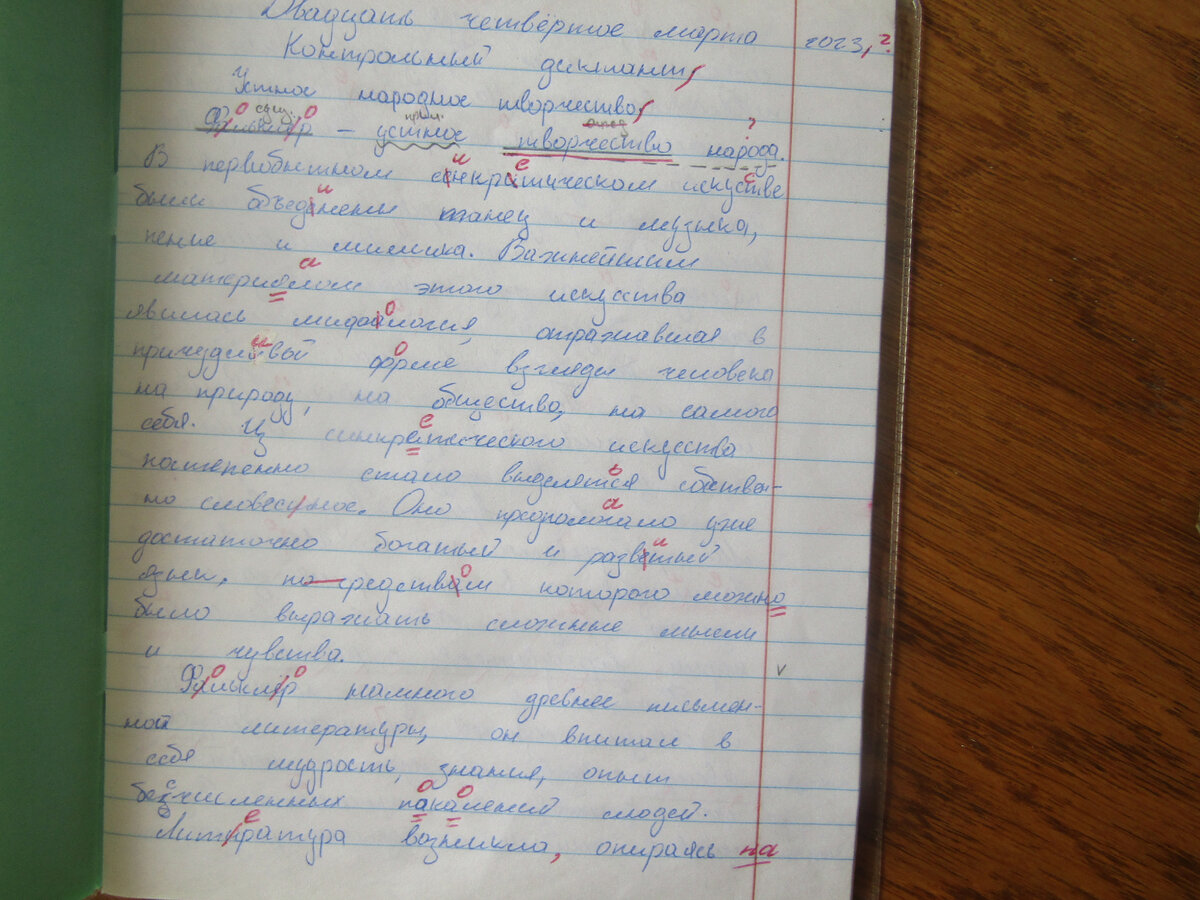 Двадцать четвёртое марта 2023, ?
Контрольный диктант,
Устное народное творчество,
Фольклор – устное творчество народа.
В первобытном синкретическом искустве
были объединены танец и музыка,
пение и мимика. Важнейшим
материолом этого искусства
явилась мифология, отражавшая в
причудливой форме взгляды человека
на природу, на общество, на самого
себя. Из синкретического искусства
постепенно стало выделятся собствен-
но словесное. Оно предполагало уже
достаточно богатый и развитый
язык, по средством которого можно
было выражать сложные мысли
и чувства.
Фольклор намного древнее письмен-
ной литературы, он впитал в
себя мудрость, знания, опыт
бесчисленных пакалений людей.
Литература возникла, опираясь на